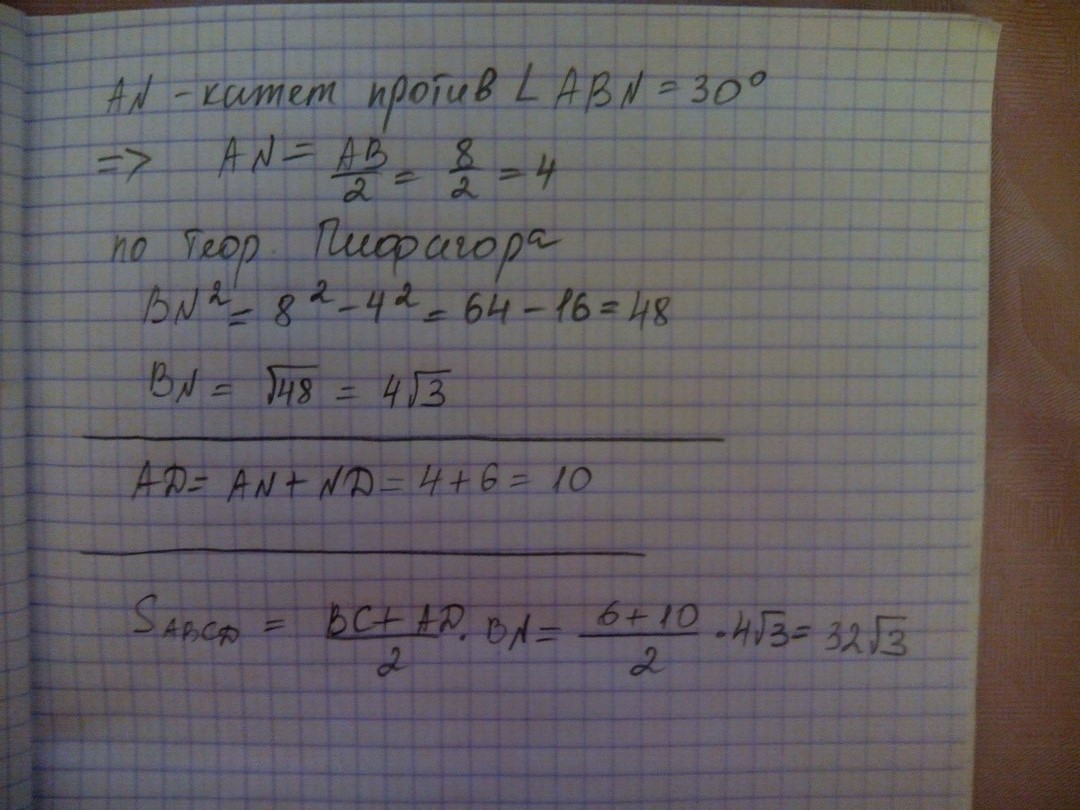 AN - катет против ∠ ABN = 30°
=> AN = AB/2 = 8/2 = 4
по теор. Пифагора
BN² = 8² - 4² = 64 - 16 = 48
BN = √48 = 4√3
AD = AN + ND = 4 + 6 = 10
S_ABCD = (BC + AD)/2 · BN = (6 + 10)/2 · 4√3 = 32√3